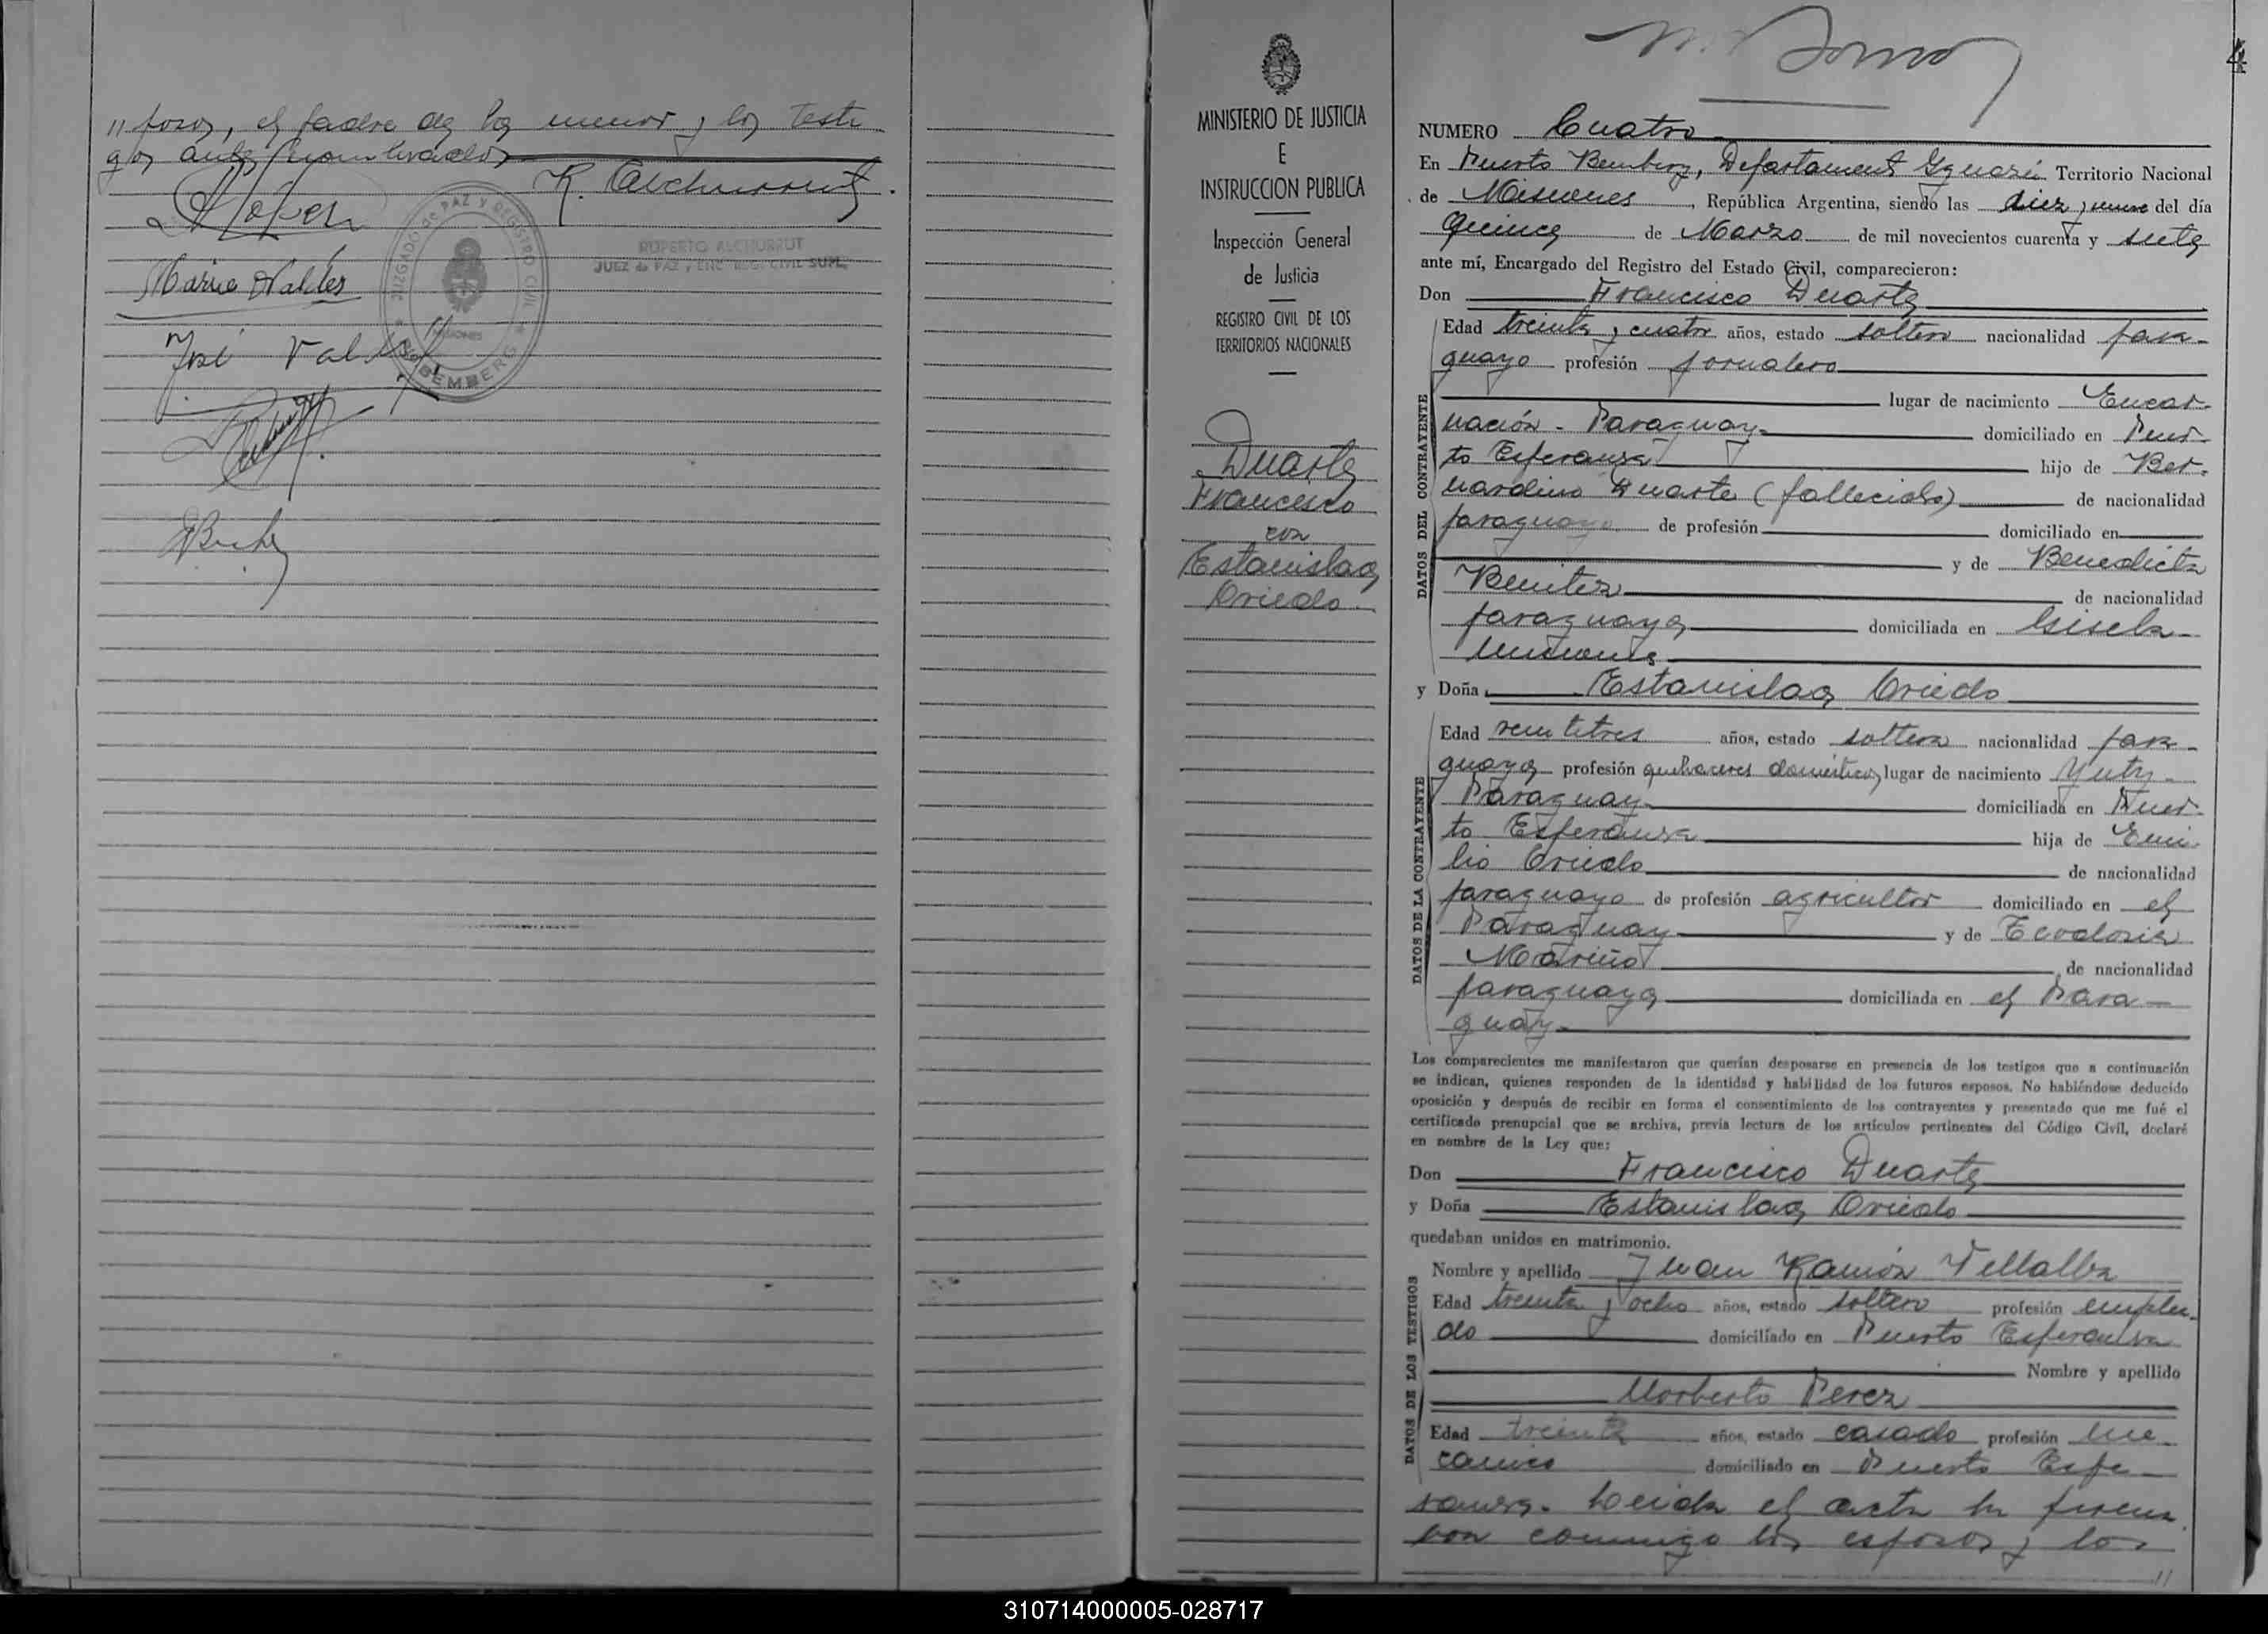 " posos, el padre de la menor y los testi
gos antes nombrados
R. Alchurrut
JUZGADO de PAZ Y REGISTRO CIVIL
MISIONES
BEMBERG
RUPERTO ALCHURRUT
JUEZ de PAZ y ENC. REG. CIVIL SUPL.
Mario Valdes
José
MINISTERIO DE JUSTICIA
E
INSTRUCCION PUBLICA
Inspección General
de Justicia
REGISTRO CIVIL DE LOS
TERRITORIOS NACIONALES
Duarte
Francisco
con
Estanislaa
Oviedo
4
NUMERO Cuatro
En Puerto Bemberg, Departamento Iguazú Territorio Nacional
de Misiones, República Argentina, siendo las diez y nueve del día
quince de Marzo de mil novecientos cuarenta y siete
ante mí, Encargado del Registro del Estado Civil, comparecieron:
Don Francisco Duarte
DATOS DEL CONTRAYENTE
Edad treinta y cuatro años, estado soltero nacionalidad para-
guayo profesión jornalero
lugar de nacimiento Encar-
nación - Paraguay domiciliado en Puer-
to Esperanza hijo de Ber-
nardino Duarte (fallecido) de nacionalidad
paraguayo de profesión domiciliado en
y de Benedicta
Benitez de nacionalidad
paraguaya domiciliada en
y Doña Estanislaa Oviedo
DATOS DE LA CONTRAYENTE
Edad veintitres años, estado soltera nacionalidad para-
guaya profesión quehaceres domésticos lugar de nacimiento Yuty-
Paraguay domiciliada en Puer-
to Esperanza hija de Emi-
lio Oviedo de nacionalidad
paraguayo de profesión agricultor domiciliado en el
Paraguay y de Teodosia
Mariño de nacionalidad
paraguaya domiciliada en el Para-
guay.
Los comparecientes me manifestaron que querían desposarse en presencia de los testigos que a continuación
se indican, quienes responden de la identidad y habilidad de los futuros esposos. No habiéndose deducido
oposición y después de recibir en forma el consentimiento de los contrayentes y presentado que me fué el
certificado prenupcial que se archiva, previa lectura de los artículos pertinentes del Código Civil, declaré
en nombre de la Ley que:
Don Francisco Duarte
y Doña Estanislaa Oviedo
quedaban unidos en matrimonio.
DATOS DE LOS TESTIGOS
Nombre y apellido Juan Ramón Villalba
Edad treinta y ocho años, estado soltero profesión emplea-
do domiciliado en Puerto Esperanza
Nombre y apellido
Norberto Perez
Edad treinta años, estado casado profesión me-
canico domiciliado en Puerto Espe-
ranza. Leida el acta la firma
ron conmigo los esposos y los
"
310714000005-028717